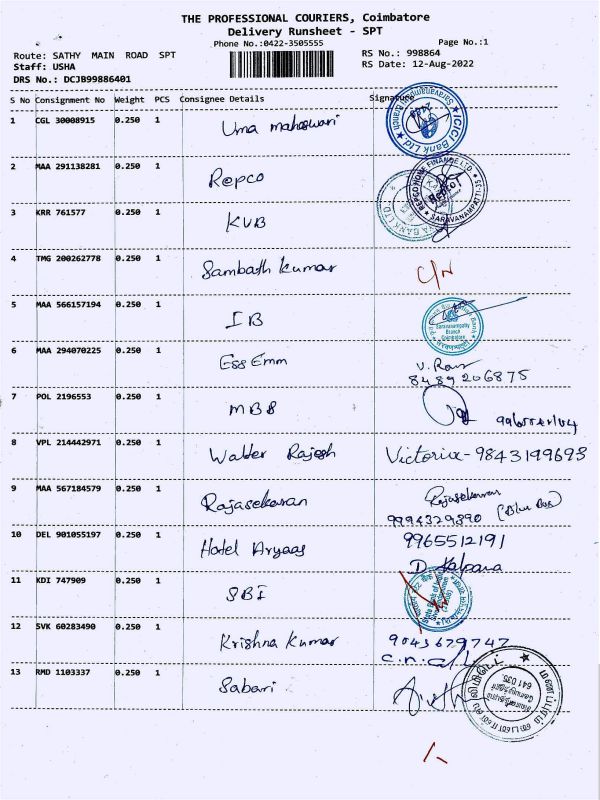 THE PROFESSIONAL COURIERS, Coimbatore
Delivery Runsheet - SPT
Phone No.:0422-3505555 Page No.:1
Route: SATHY MAIN ROAD SPT RS No.: 998864
Staff: USHA RS Date: 12-Aug-2022
DRS No.: DCJB99886401
S No Consignment No Weight PCS Consignee Details Signature
1 CGL 30008915 0.250 1 Uma maheswari
ICICI Bank Ltd
Saravanampatti Branch
2 MAA 291138281 0.250 1 Repco
REPCO HOME FINANCE LTD.
SARAVANAMPATTI-35
3 KRR 761577 0.250 1 KVB
BANK LTD
4 TMG 200262778 0.250 1 Sambath kumar C/N
5 MAA 566157194 0.250 1 IB
Branch
Coimbatore
6 MAA 294070225 0.250 1 Ess Emm
8489206875
7 POL 2196553 0.250 1 MBB
8 VPL 214442971 0.250 1 Walter Rajesh Victoria-9843199693
9 MAA 567184579 0.250 1 Rajasekaran Rajasekaran
9994329890
10 DEL 901055197 0.250 1 Hotel Aryaas 9965512191
D. Kalpana
11 KDI 747909 0.250 1 SBI
12 SVK 60283490 0.250 1 Krishna Kumar 9043679747
13 RMD 1103337 0.250 1 Sabari
641 035.